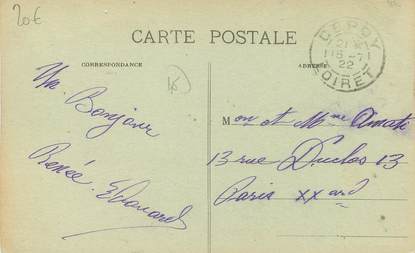 20€
CARTE POSTALE
CORRESPONDANCE
ADRESSE
CEPOY
21 *
15-7
22
LOIRET
Un Bonjour
Renée. Edouard
Mon et Mme Amate
13 rue Duclos 13
Paris XX ard